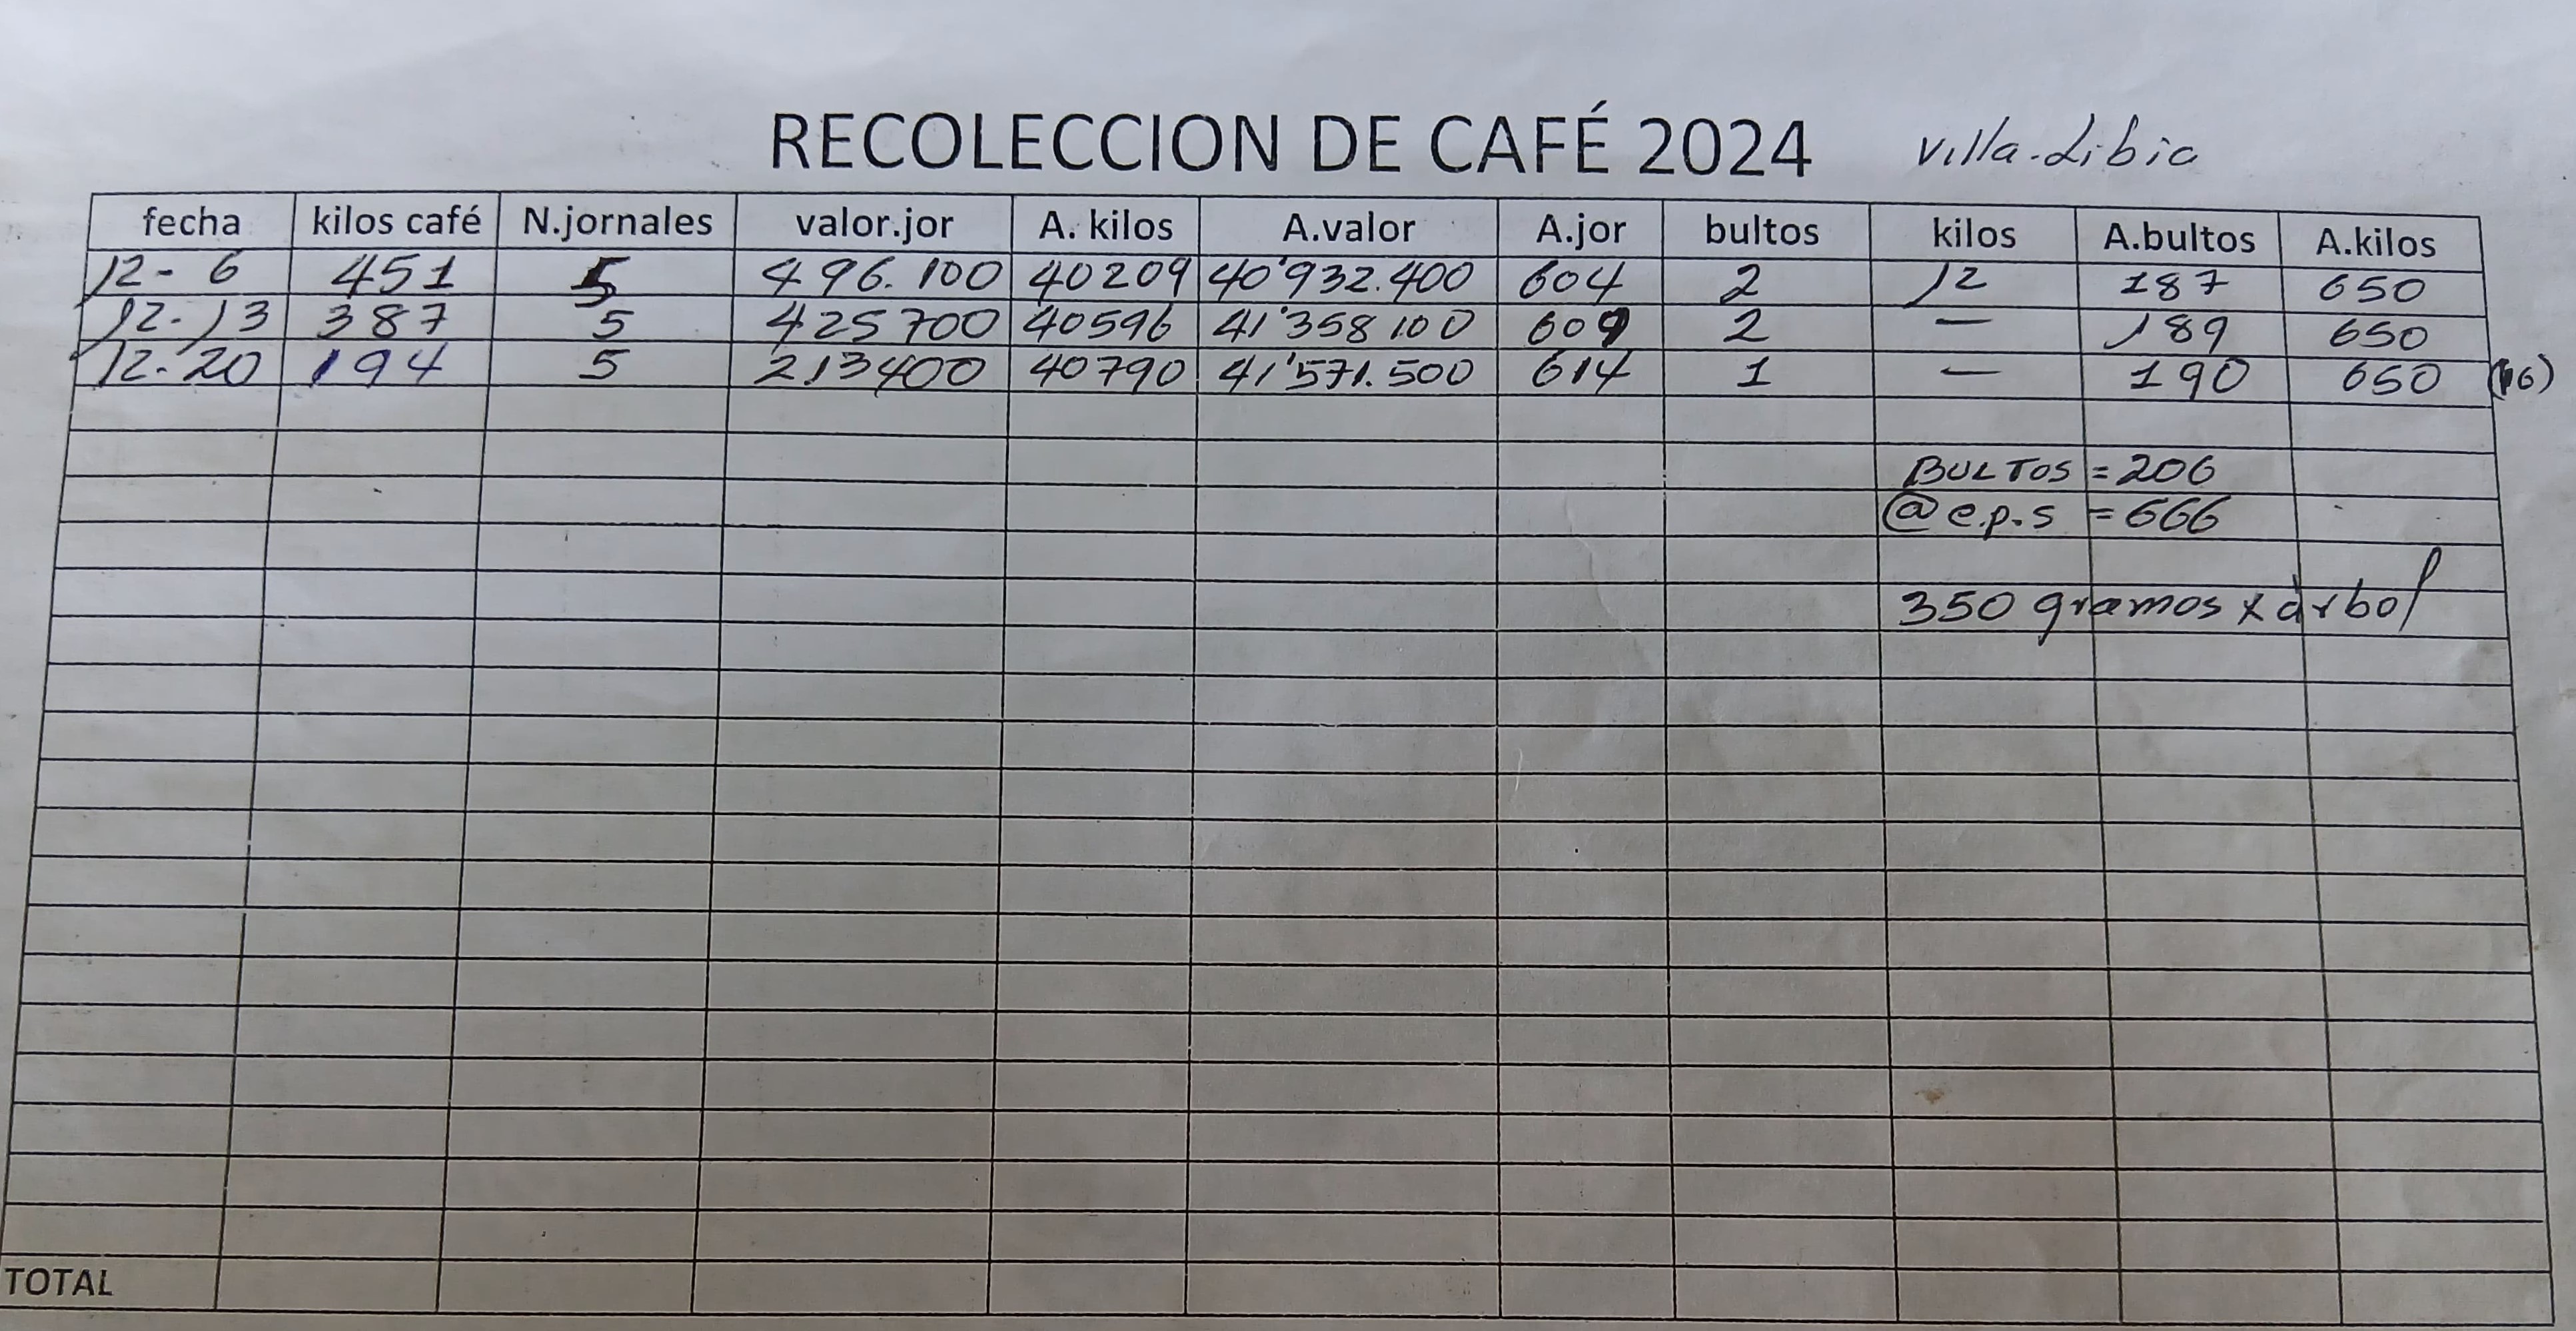 RECOLECCION DE CAFÉ 2024 villa.Libia
fecha kilos café N.jornales valor.jor A. kilos A.valor A.jor bultos kilos A.bultos A.kilos
12-6 451 5 496.100 40209 40'932.400 604 2 12 187 650
12-13 387 5 425700 40596 41'358100 609 2 — 189 650
12-20 194 5 213400 40790 41'571.500 614 1 — 190 650 (16)
BULTOS = 206
@ e.p.s = 666
350 gramos x árbol
TOTAL